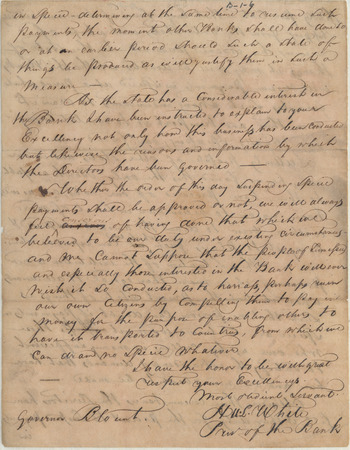 in Specie - determining at the same time to resume such
payments, the moment other Banks Shall have done so
or at an earlier period should such a State of
things be produced as will justify them in such a
Measure -
As the State has a Considerable interest in
the Bank I have been instructed to explain to your
Excellency not only how this business has been conducted
but likewise the reasons and information by which
the Directors have been Governed -
Whether the order of this day Suspending Specie
payments Shall be approved or not, we will always
feel of having done that which we
believed to be our duty under existing circumstances
and We Cannot Suppose that the people of Tennessee
and especially those interested in the Bank will ever
wish it so Conducted, as to harrass, perhaps ruin
our own Citizens by Compelling them to pay
money for the purpose of enabling others to
have it transported to Countries, from which we
can draw no Specie Whatever
I have the honor to be with great
respect your Excellencys
Most obedient Servant
Governor Blount. H. L. White
Prest of the Bank